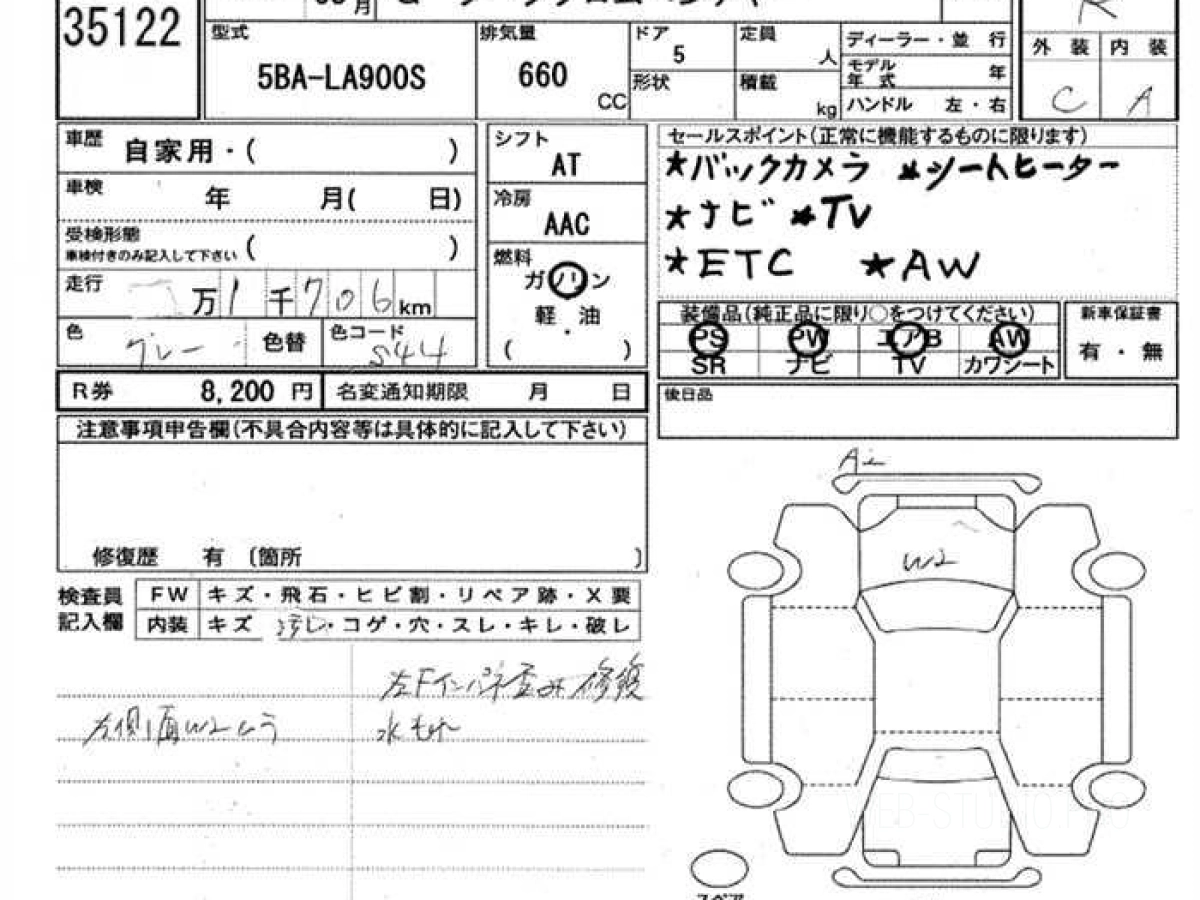 35122
月
型式
5BA-LA900S
排気量
660
CC
ドア
5
形状
定員
人
積載
kg
ディーラー・並 行
モデル
年 式
年
ハンドル 左・右
R
外 装
内 装
C
A
車歴
自家用・( )
車検
年 月( 日)
受検形態
車検付きのみ記入して下さい
( )
走行
万1千706km
色
グレー
色替
色コード
S44
シフト
AT
冷房
AAC
燃料
ガソリン
軽・油
( )
セールスポイント(正常に機能するものに限ります)
★バックカメラ ★シートヒーター
★ナビ ★TV
★ETC ★AW
装備品(純正品に限り○をつけてください)
PS PW エアB AW
SR ナビ TV カワシート
新車保証書
有・無
R券 8,200 円
名変通知期限 月 日
後日品
注意事項申告欄(不具合内容等は具体的に記入して下さい)
修復歴 有 (箇所 )
検査員
記入欄
FW
キズ・飛石・ヒビ割・リペア跡・X要
内装
キズ 汚レ・コゲ・穴・スレ・キレ・破レ
左Fインパネ歪み修復
左側面W2しう
A2
W2
スペア
WEB-STUDIO.PRO